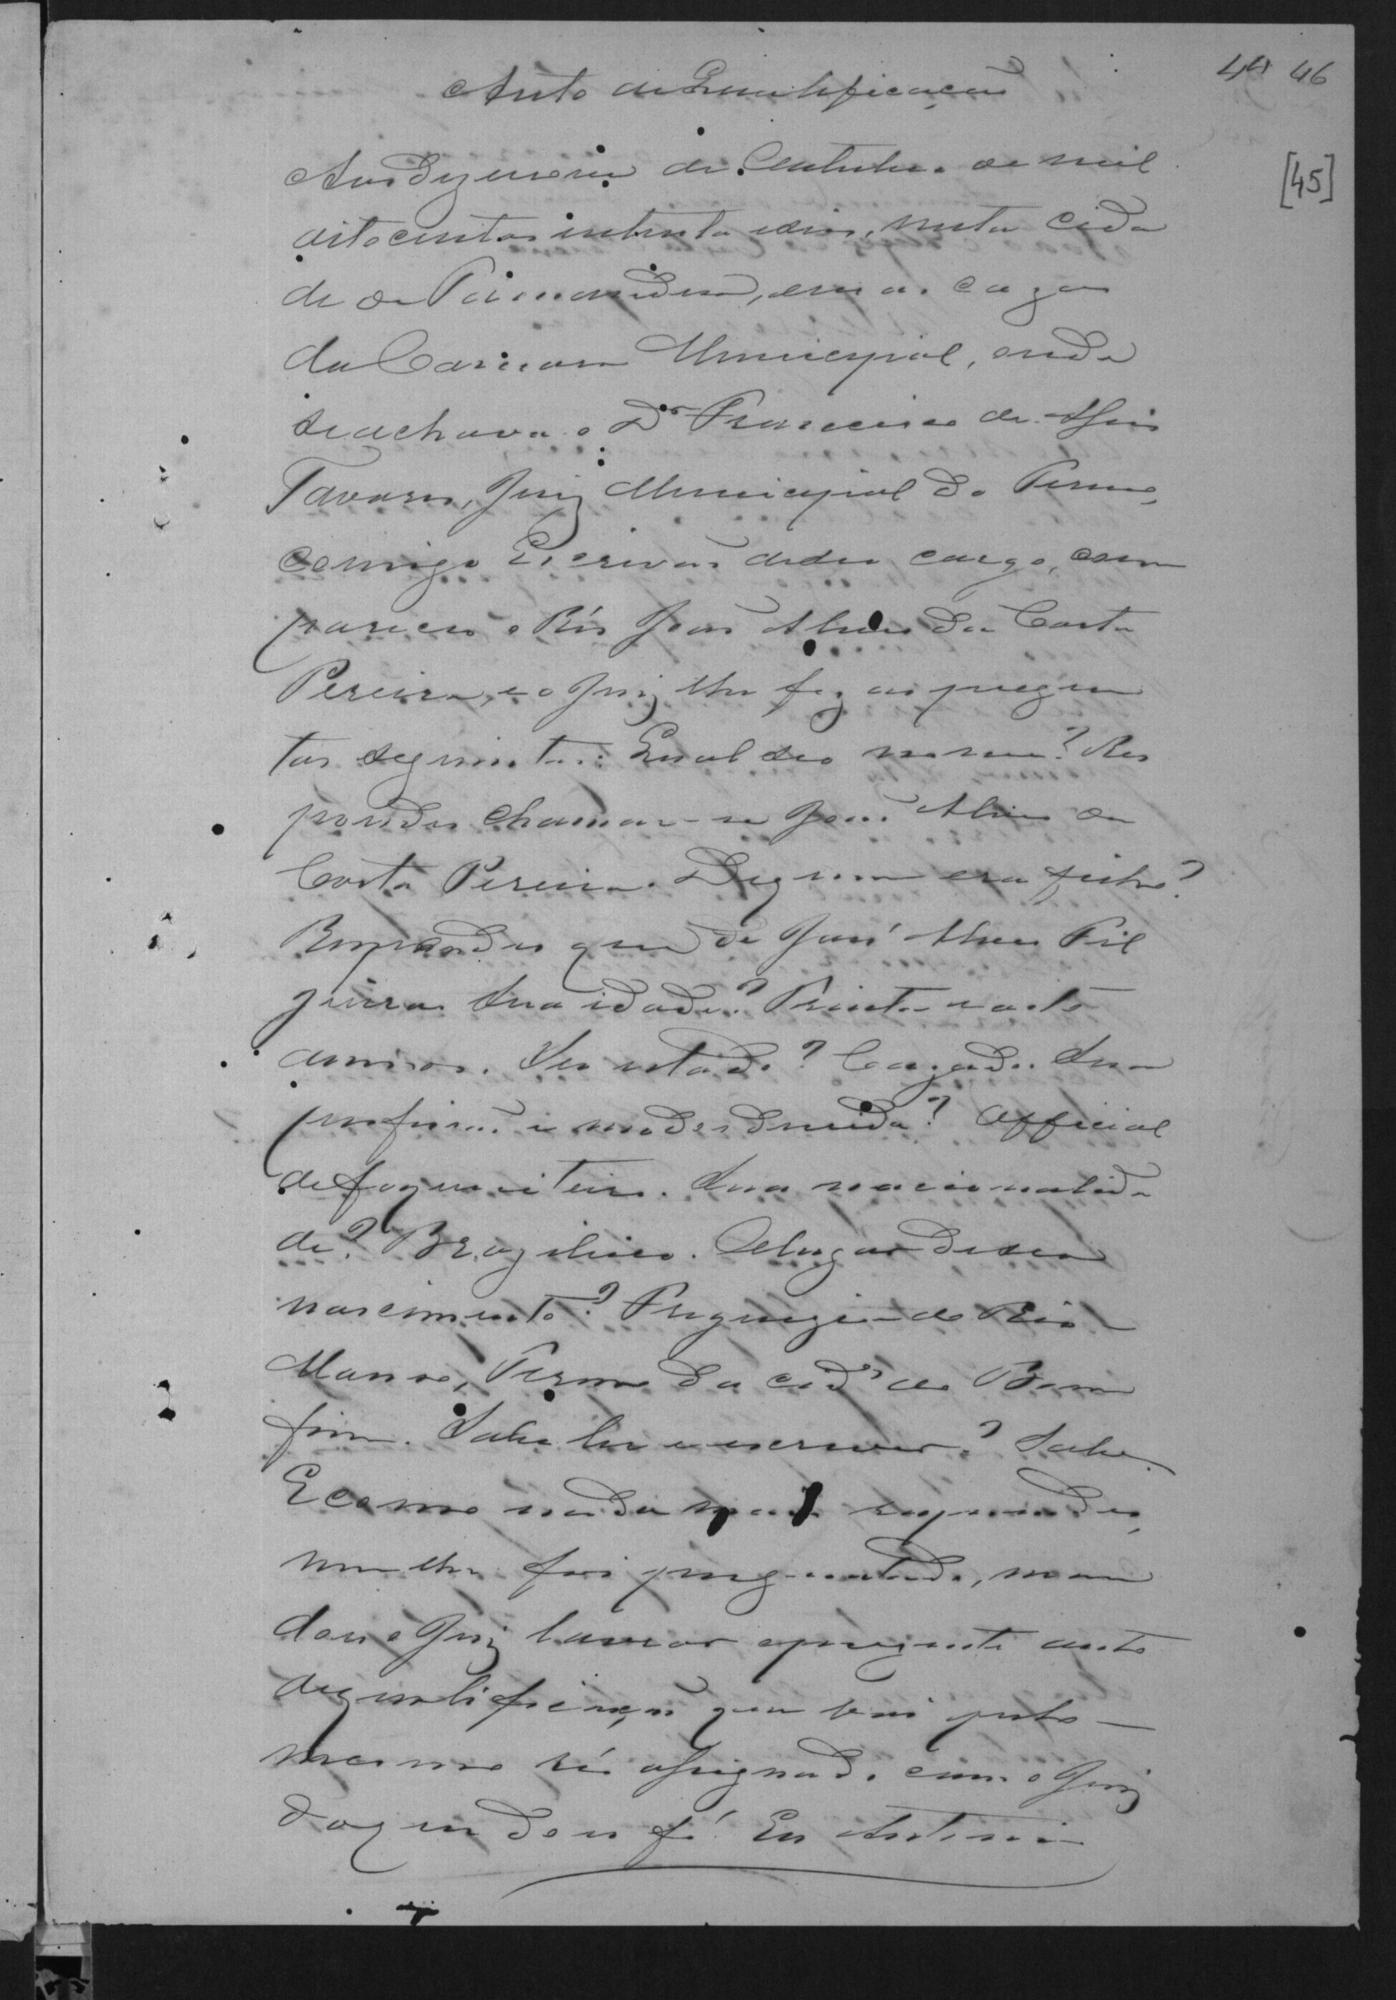 44 46
[45]
Auto de Qualificação
Aos dezenove de Outubro de mil
oitocentos e setenta e seis, nesta cida
de de Piumandira, em a caza
da Camara Municipal, onde
se achava o Dr Francisco de Assis
Tavares, Juiz Municipal do Termo,
comigo Escrivão de seu cargo, com
pareceo o Réo João Alves da Costa
Pereira, e o Juiz lhe fez as pregun
tas seguintes: Qual seo nome? Res
pondeo chamar-se João Alves da
Costa Pereira. De quem era filho?
Respondeo que de José Alves Fil
gueiras. Sua idade? Trinta e oito
annos. Seu estado? Cazado. Sua
profissão e modo de vida? Official
de fogueiteiro. Sua nacionalida
de? Brazileiro. O lugar de seu
nascimento? Freguezia do Rio
Manso, Termo da cide de Bom
fim. Sabe ler e escrever? Sabe.
E como nada mais respondeo,
nem lhe foi preguntado, man
dou o Juiz lavrar o prezente auto
de qualificação que vai pelo
mesmo réo assignado com o Juiz
do que dou fé. Eu Antonio